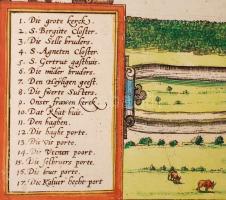 1. Die grote kerck.
2. S. Bergitte Closter.
3. Die Selle bruders.
4. S. Agneten Closter.
5. S. Gertrut gasthuis.
6. Die mider bruders.
7. Den Heyligen geest.
8. Die swerte Susters.
9. Onser frawen kerck
10. Dat Rhat huis.
11. Den haghen.
12. Die haghe porte.
13. Die vis porte.
14. Die Veenen poort.
15. Die selbruers porte.
16. Die leur porte.
17. Die Kaluer hecht port